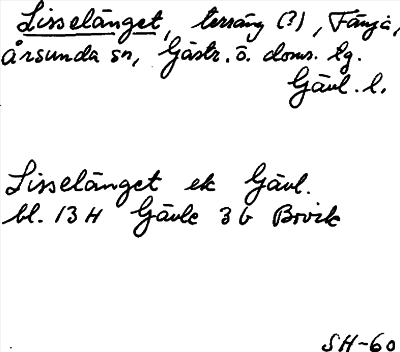 Lisselänget, terräng (?), Fänja,
Årsunda sn, Gästr. ö. doms. tg.
Gävl. l.
Lisselänget ek Gävl.
bl. 13 H Gävle 3 b Brovik
SH-60